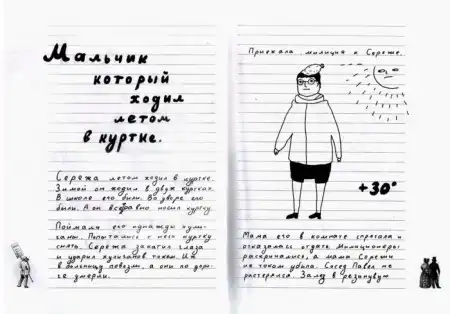 Мальчик
который
ходил
летом
в куртке.
Сережа летом ходил в куртке.
Зимой он ходил в двух куртках.
В школе его били. Во дворе его
били. А он всёравно носил куртку.
Поймали его однажды хули-
ганы. Попытались с него куртку
снять. Сережа закатил глаза
и ударил хулиганов током. Их
в больницу повезли, а они по доро-
ге умерли.
Приехала милиция к Сереже.
+30°
Мама его в комнате спрятала и
отказалась отдать. Милиционеры
раскричались, а мама Сережи
их током убила. Сосед Павел не
растерялся. Залез в резиновую